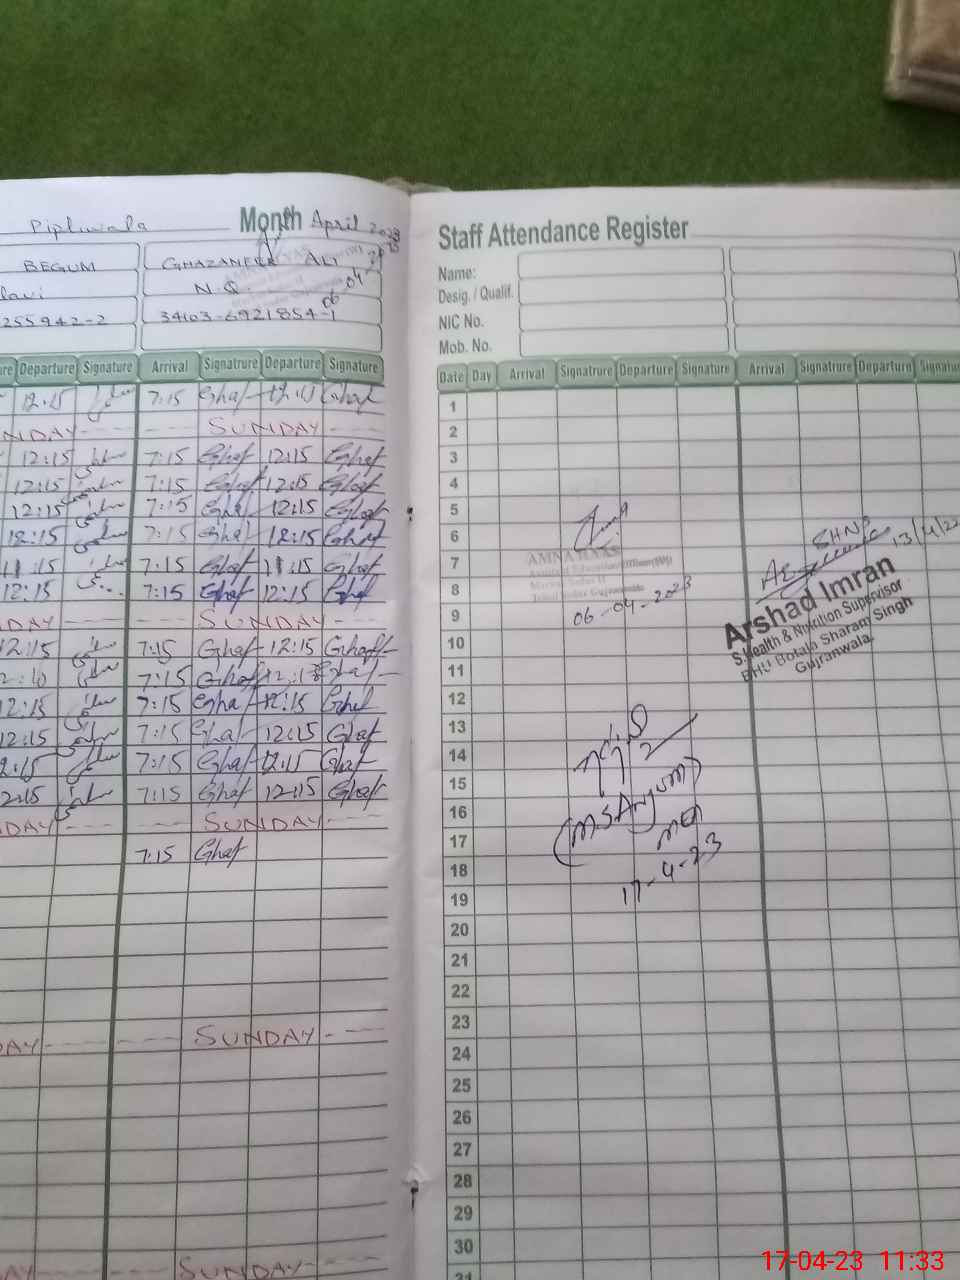 Pipliwala Month April 2023
BEGUM GHAZANFER ALI
N.Q.
255942-2 34103-6921854-1
06 04
Departure Signature Arrival Signatrure Departure Signature
12:15 7:15 Ghaf 12:15 Ghaf
SUNDAY
12:15 7:15 Ghaf 12:15 Ghaf
12:15 7:15 Ghaf 12:15 Ghaf
12:15 7:15 Ghaf 12:15 Ghaf
12:15 7:15 Ghaf 12:15 Ghaf
11:15 7:15 Ghaf 11:15 Ghaf
12:15 7:15 Ghaf 12:15 Ghaf
SUNDAY
12:15 7:15 Ghaf 12:15 Ghaf
7:15 Ghaf Ghaf
12:15 7:15 Ghaf 12:15 Ghaf
12:15 7:15 Ghaf 12:15 Ghaf
12:15 7:15 Ghaf 12:15 Ghaf
12:15 7:15 Ghaf 12:15 Ghaf
SUNDAY
7:15 Ghaf
SUNDAY
SUNDAY
Staff Attendance Register
Name:
Desig. / Qualif.
NIC No.
Mob. No.
Date Day Arrival Signatrure Departure Signature Arrival Signatrure Departure
1
2
3
4
5
6
7
8
9
10
11
12
13
14
15
16
17
18
19
20
21
22
23
24
25
26
27
28
29
30
31
AMNA
06-04-2023
SHNS
13/4/23
Arshad Imran
S.Health & Nutrition Supervisor
BHU Botala Sharam Singh
Gujranwala.
(MSAnjum)
MEA
17-4-23
17-04-23 11:33